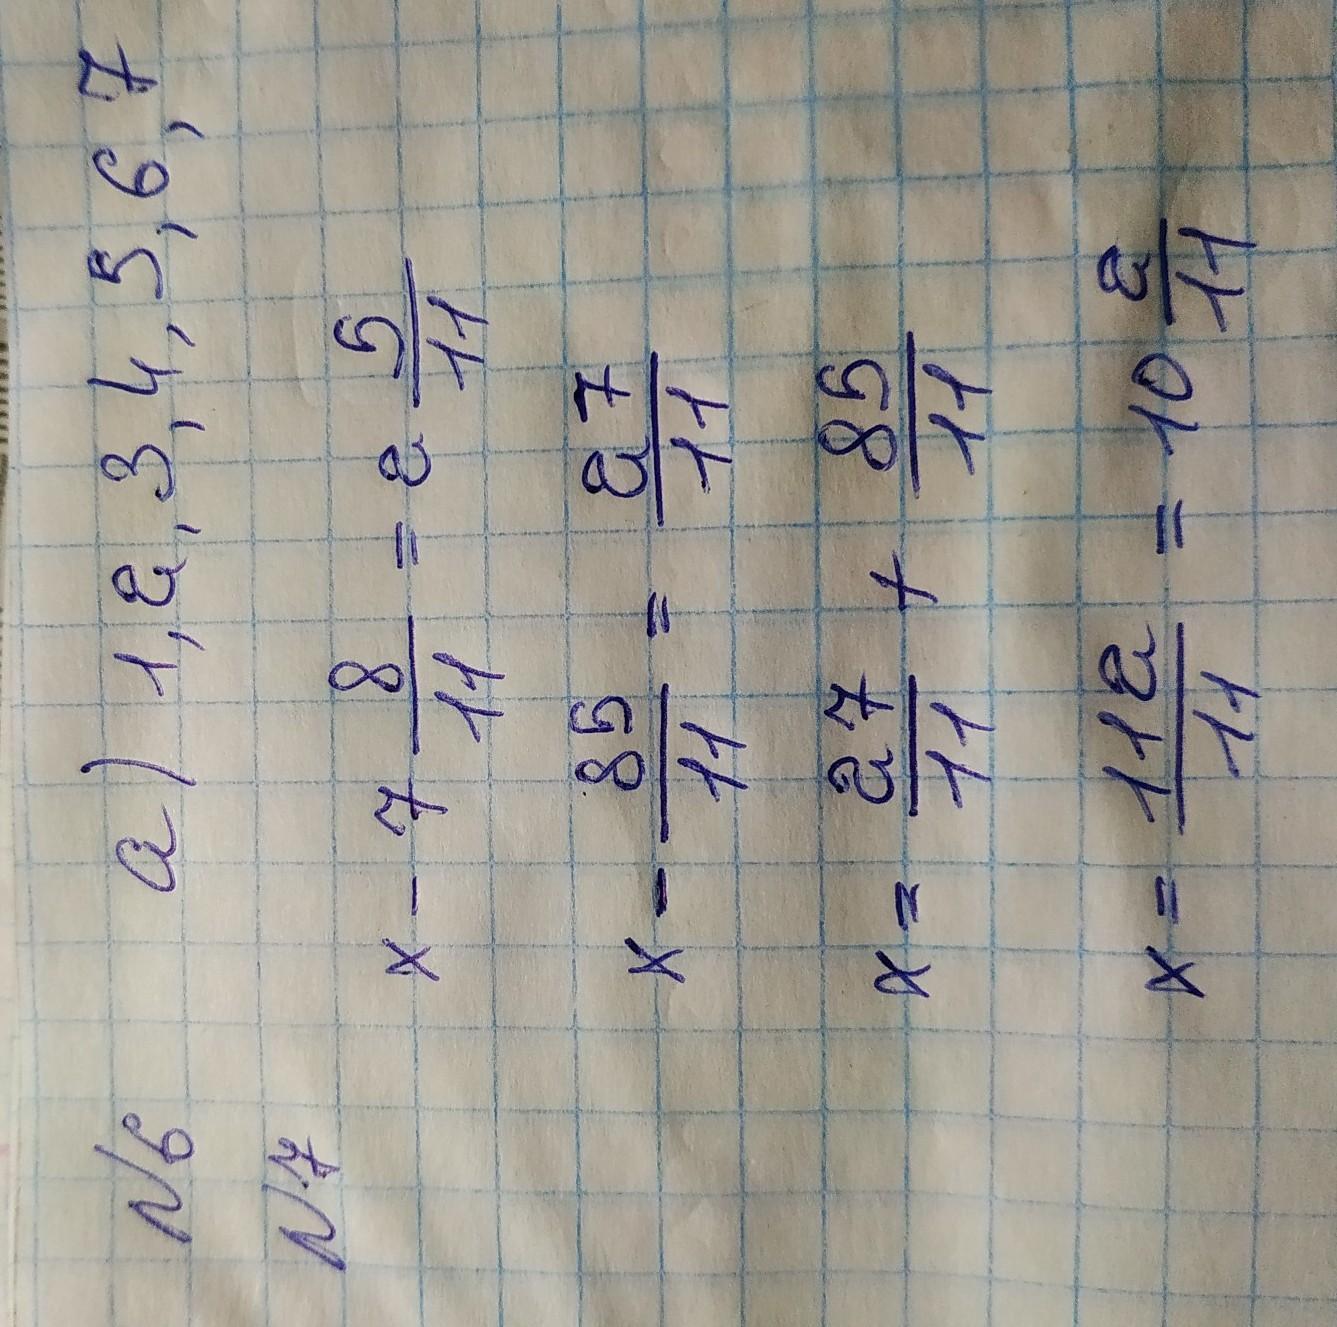 N6 a) 1, 2, 3, 4, 5, 6, 7
N7
x - 7 8/11 = 2 5/11
x - 85/11 = 27/11
x = 27/11 + 85/11
x = 112/11 = 10 2/11